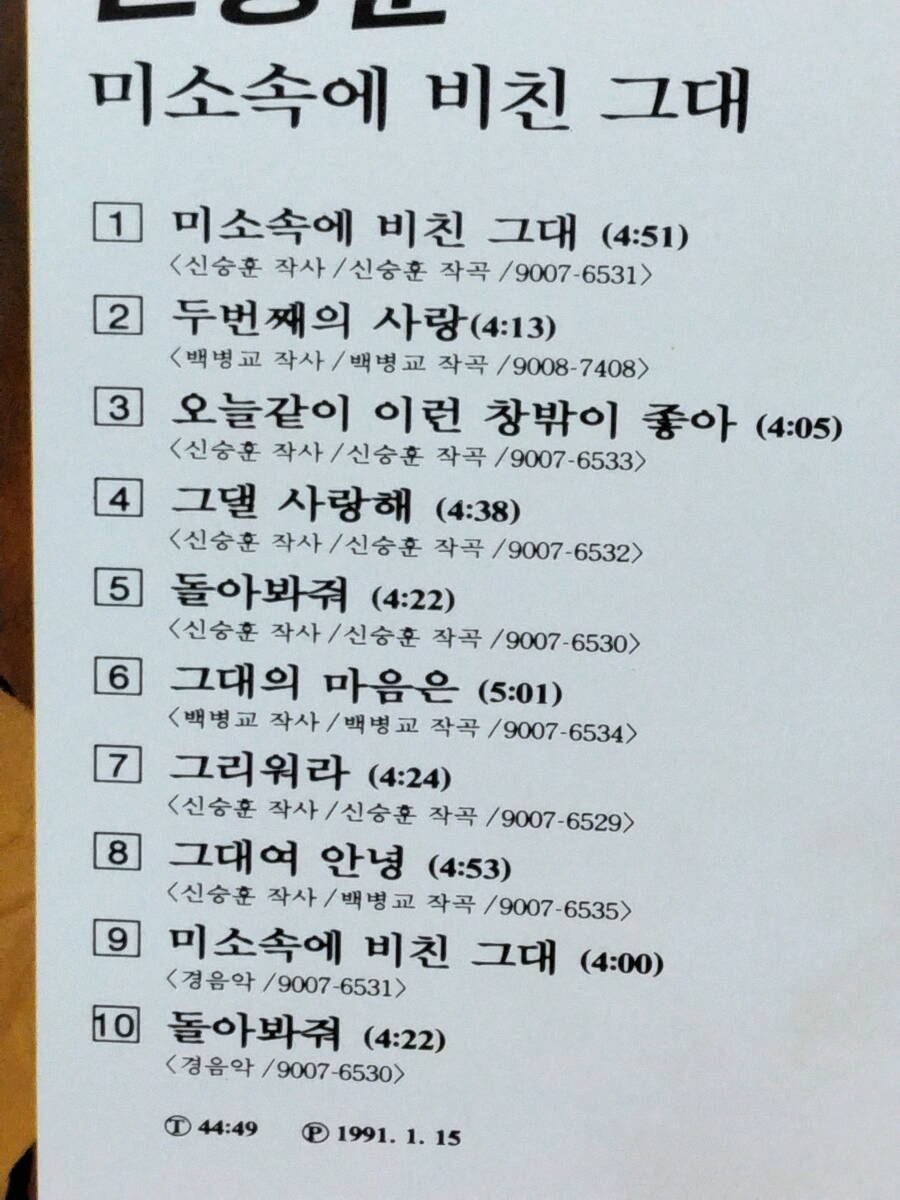 미소속에 비친 그대
1 미소속에 비친 그대 (4:51)
〈신승훈 작사/신승훈 작곡/9007-6531〉
2 두번째의 사랑(4:13)
〈백병교 작사/백병교 작곡/9008-7408〉
3 오늘같이 이런 창밖이 좋아 (4:05)
〈신승훈 작사/신승훈 작곡/9007-6533〉
4 그댈 사랑해 (4:38)
〈신승훈 작사/신승훈 작곡/9007-6532〉
5 돌아봐줘 (4:22)
〈신승훈 작사/신승훈 작곡/9007-6530〉
6 그대의 마음은 (5:01)
〈백병교 작사/백병교 작곡/9007-6534〉
7 그리워라 (4:24)
〈신승훈 작사/신승훈 작곡/9007-6529〉
8 그대여 안녕 (4:53)
〈신승훈 작사/백병교 작곡/9007-6535〉
9 미소속에 비친 그대 (4:00)
〈경음악/9007-6531〉
10 돌아봐줘 (4:22)
〈경음악/9007-6530〉
Ⓣ 44:49 Ⓟ 1991. 1. 15